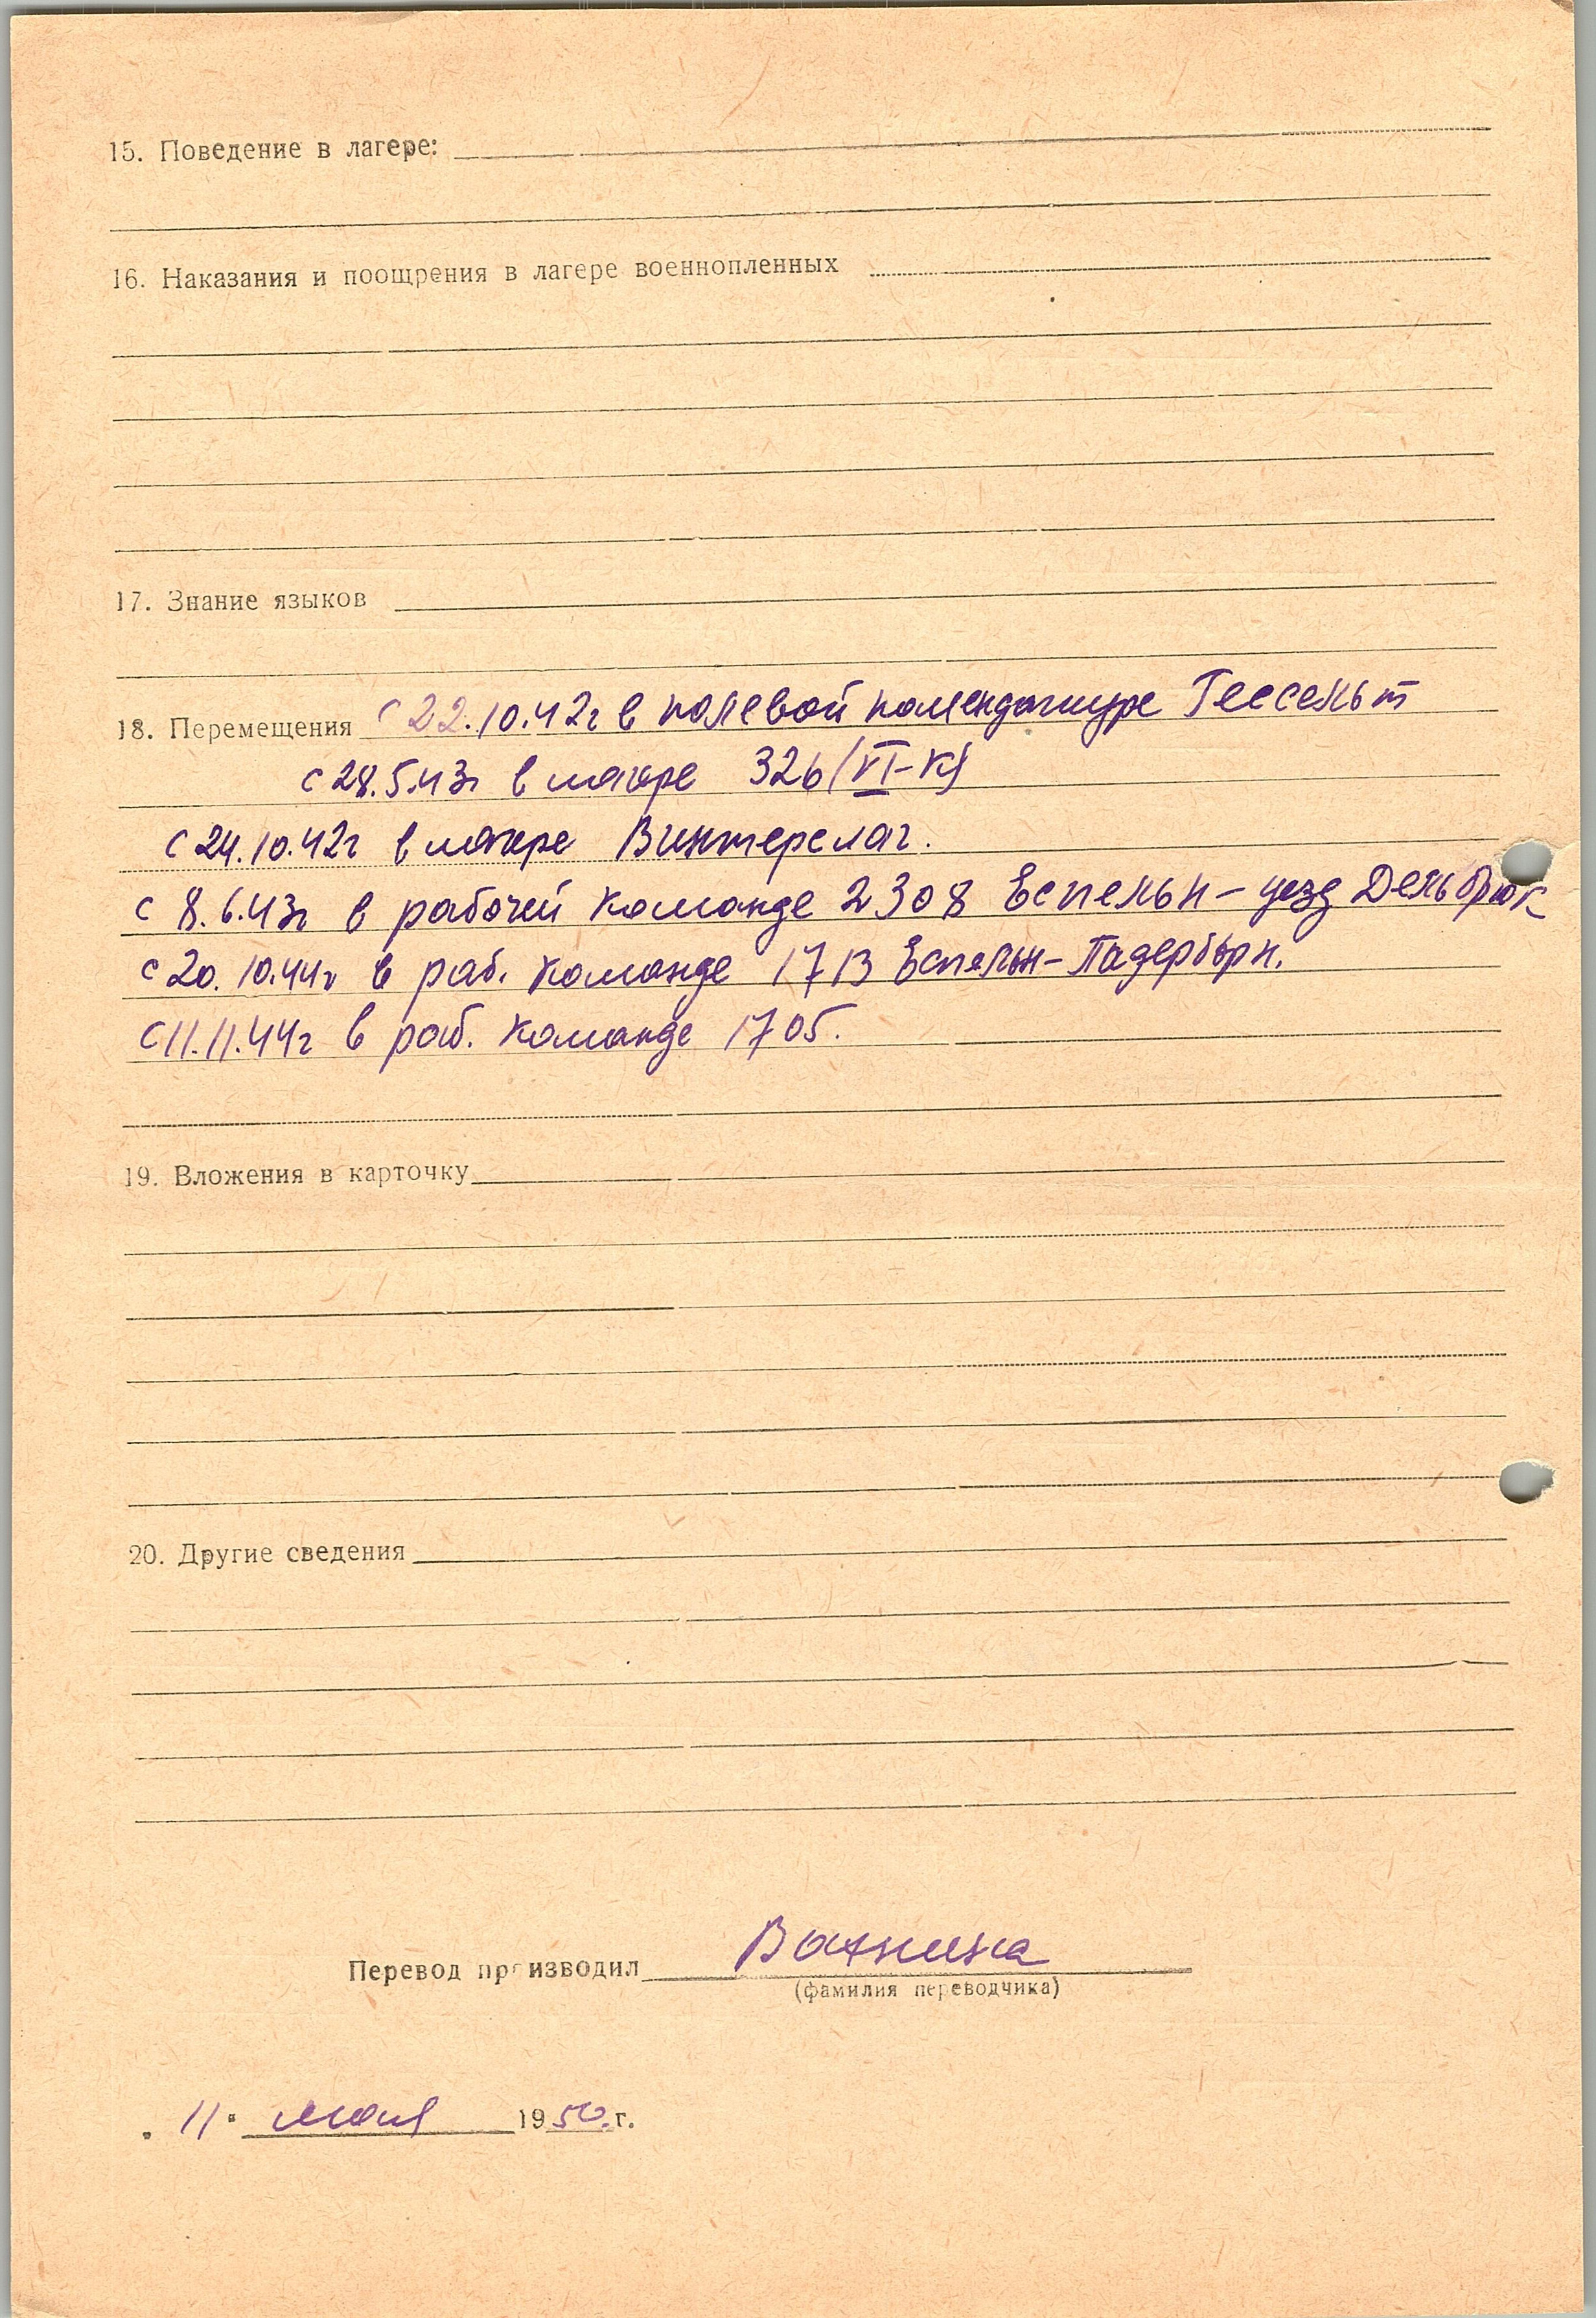 15. Поведение в лагере:
16. Наказания и поощрения в лагере военнопленных
17. Знание языков
18. Перемещения с 22.10.42г в полевой комендатуре Гессельт
с 28.5.43г в лагере 326/VI-К/
с 24.10.42г в лагере Винтерслаг.
с 8.6.43г в рабочей команде 2308 Еспельн – уезд Дельбрюк
с 20.10.44г в раб. команде 1713 Еспельн-Падерборн.
с 11.11.44г в раб. команде 1705.
19. Вложения в карточку
20. Другие сведения
Перевод производил
(фамилия переводчика)
"11" мая 1950 г.